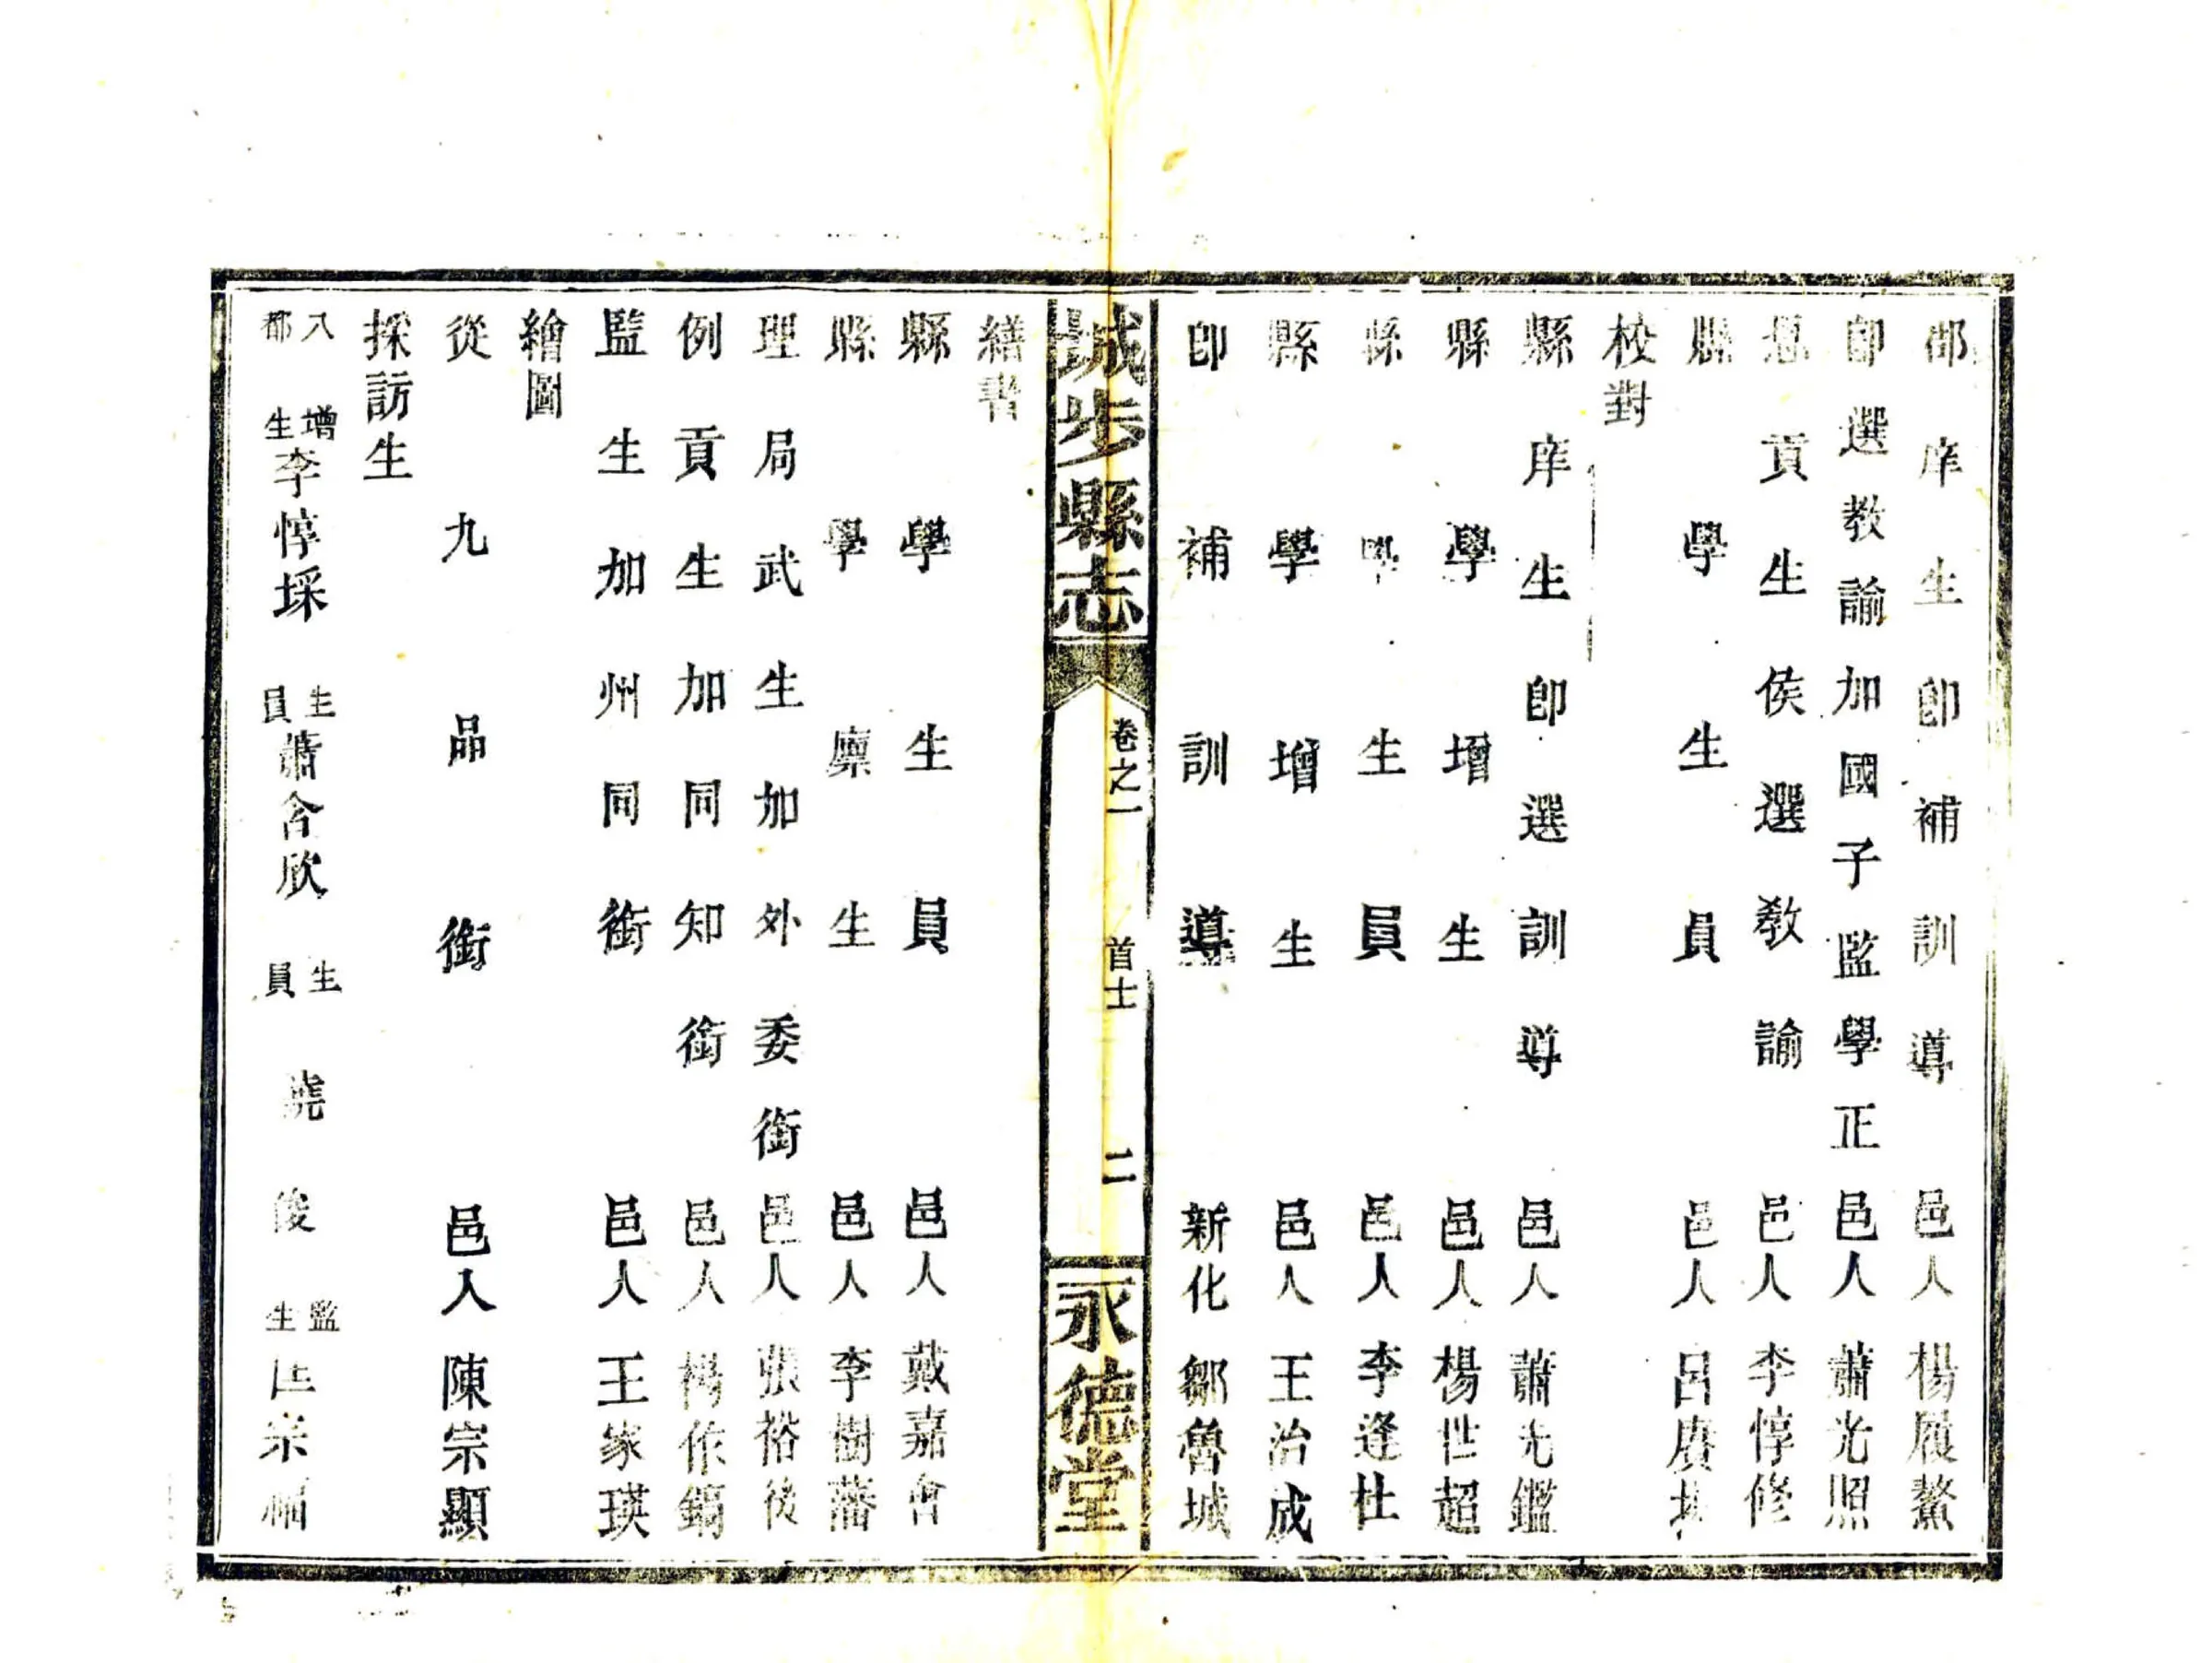 郡庠生卽補訓導 邑人 楊履鰲
卽選教諭加國子監學正 邑人 蕭光照
恩貢生侯選教諭 邑人 李惇修
縣學生員 邑人 呂賡
校對
縣庠生卽選訓導 邑人 蕭光鑑
縣學增生 邑人 楊世超
縣學生員 邑人 李逢杜
縣學增生 邑人 王治成
卽補訓導 新化 鄒魯城
城步縣志 卷之一 首士 二 永德堂
繕書
縣學生員 邑人 戴嘉會
縣學廩生 邑人 李樹藩
理局武生加外委銜 邑人 張裕後
例貢生加同知銜 邑人 楊作鎬
監生加州同銜 邑人 王家瑛
繪圖
從九品銜 邑人 陳宗顯
採訪生
八都 增生李惇埰 生員蕭含欣 生員 俊 監生 宗